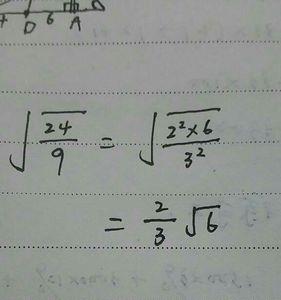 D 6 A
√(24/9) = √(2²×6/3²)
= 2/3 √6